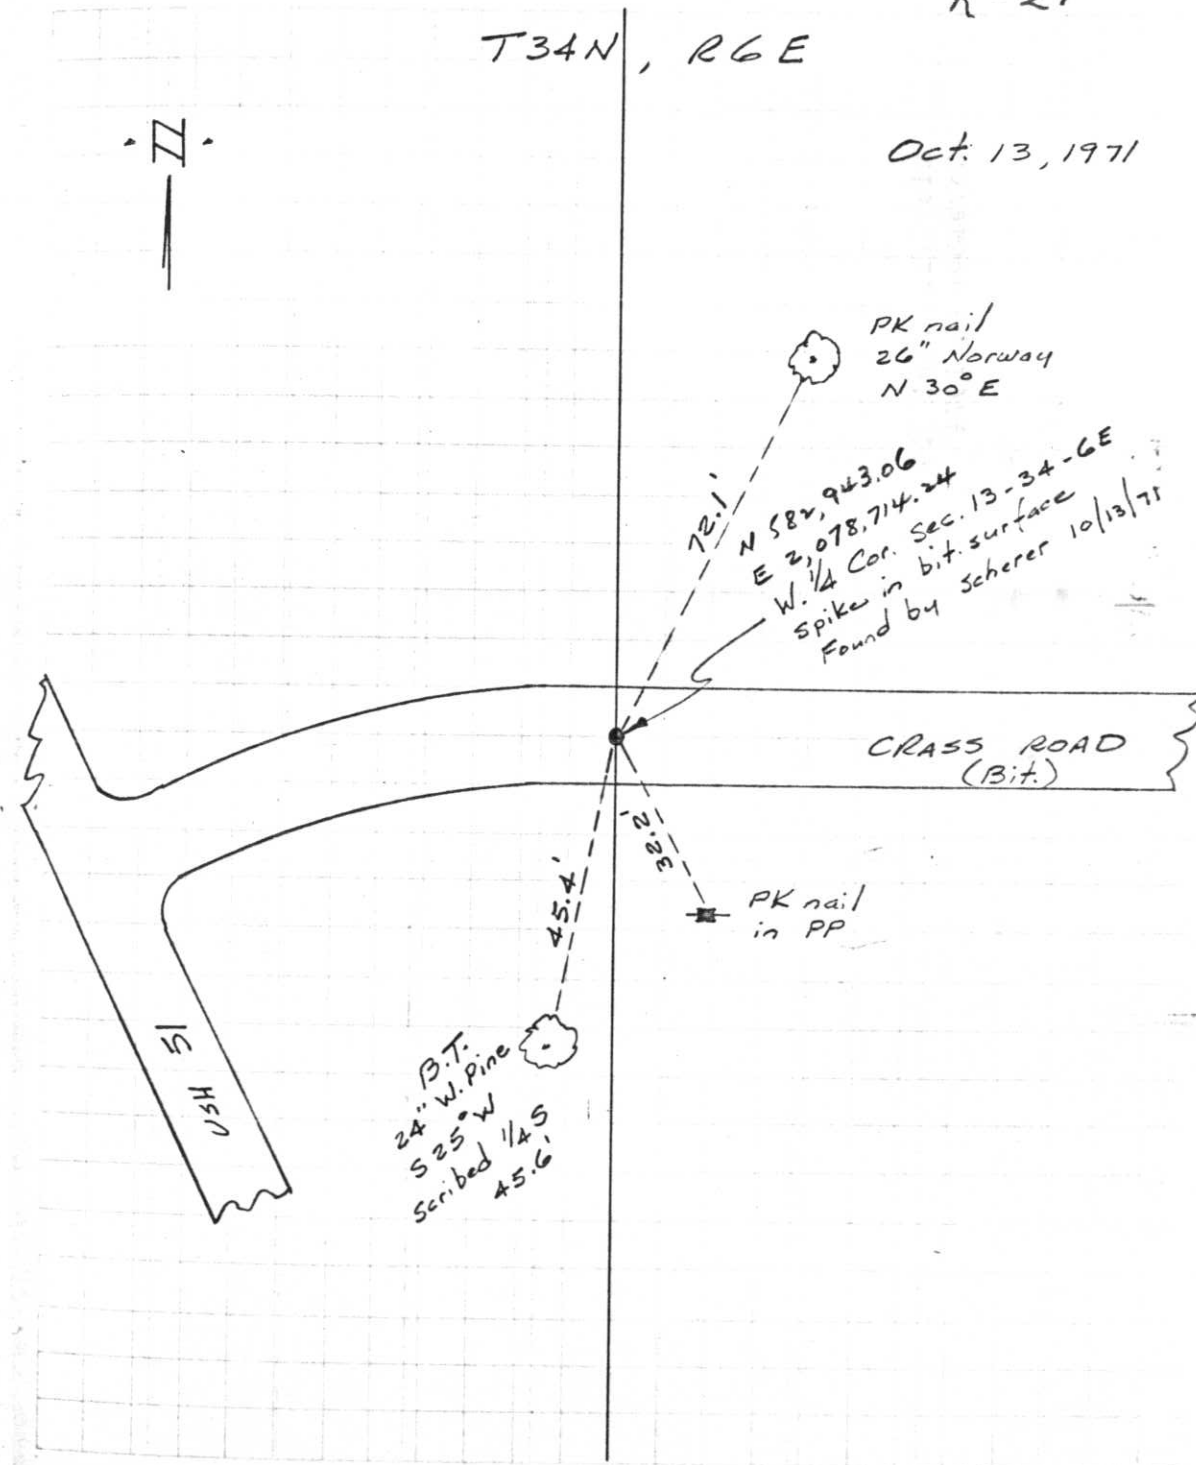 T34N, R6E
N
Oct. 13, 1971
PK nail
26" Norway
N 30° E
72.1'
N 582,943.06
E 2,078,714.24
W. 1/4 Cor. Sec. 13-34-6E
spike in bit. surface
Found by Scherer 10/13/71
CRASS ROAD
(Bit.)
32.2'
45.4'
PK nail
in PP
USH 51
B.T.
24" W. Pine
S 25° W
Scribed 1/4 S
45.6'